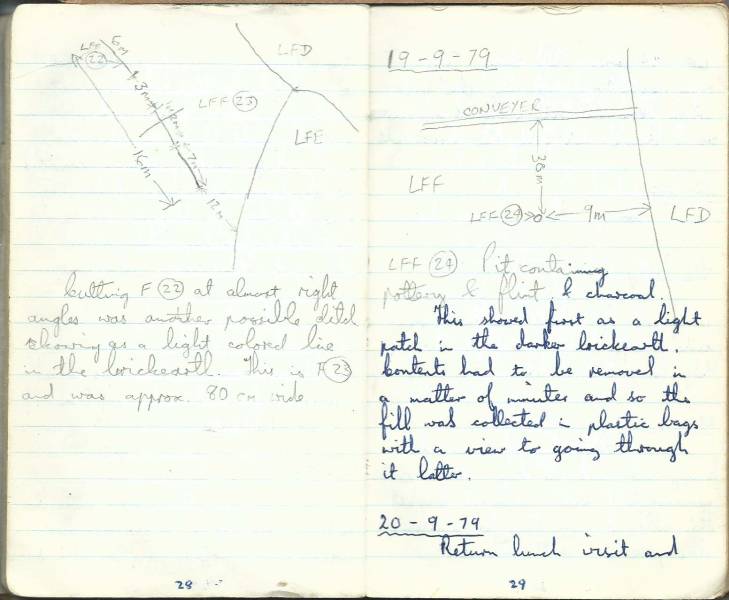 LFF
22
6m
3m
LFF 23
LFD
LFE
7m
16m
12m
Cutting F 22 at almost right
angles was another possible ditch
showing as a light colored line
in the brickearth. This is F 23
and was approx. 80 cm wide
28
19-9-79
CONVEYER
38m
LFF
LFF 24
9m
LFD
LFF 24 Pit containing
pottery & flint & charcoal.
This showed first as a light
patch in the darker brickearth.
Contents had to be removed in
a matter of minutes and so the
fill was collected in plastic bags
with a view to going through
it latter.
20-9-79
Return lunch visit and
29